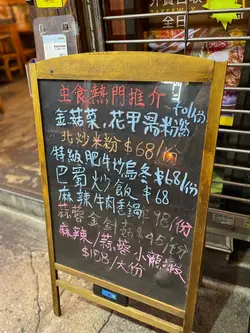 主食熱門推介
金菇菜,花甲湯粉
$68/份
北炒米粉 $68/份
特級肥牛炒烏冬 $68/份
巴蜀炒飯 $68
麻辣牛肉毛鍋 $78/份
蒜蓉金針菇 $45/份
麻辣/蒜蓉小龍蝦
$158/大份